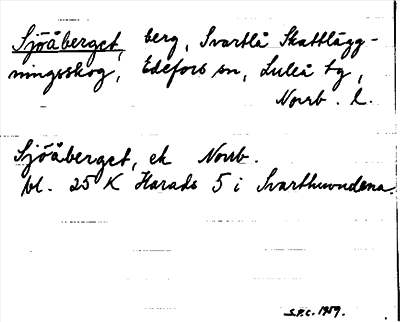 Sjöåberget, berg, Svartlå Skattlägg-
ningsskog, Edefors sn, Luleå tg,
Norrb. l.
Sjöåberget, ek Norrb.
bl. 25 K Harads 5 i Svarthuvudena.
S.P.C. 1959.